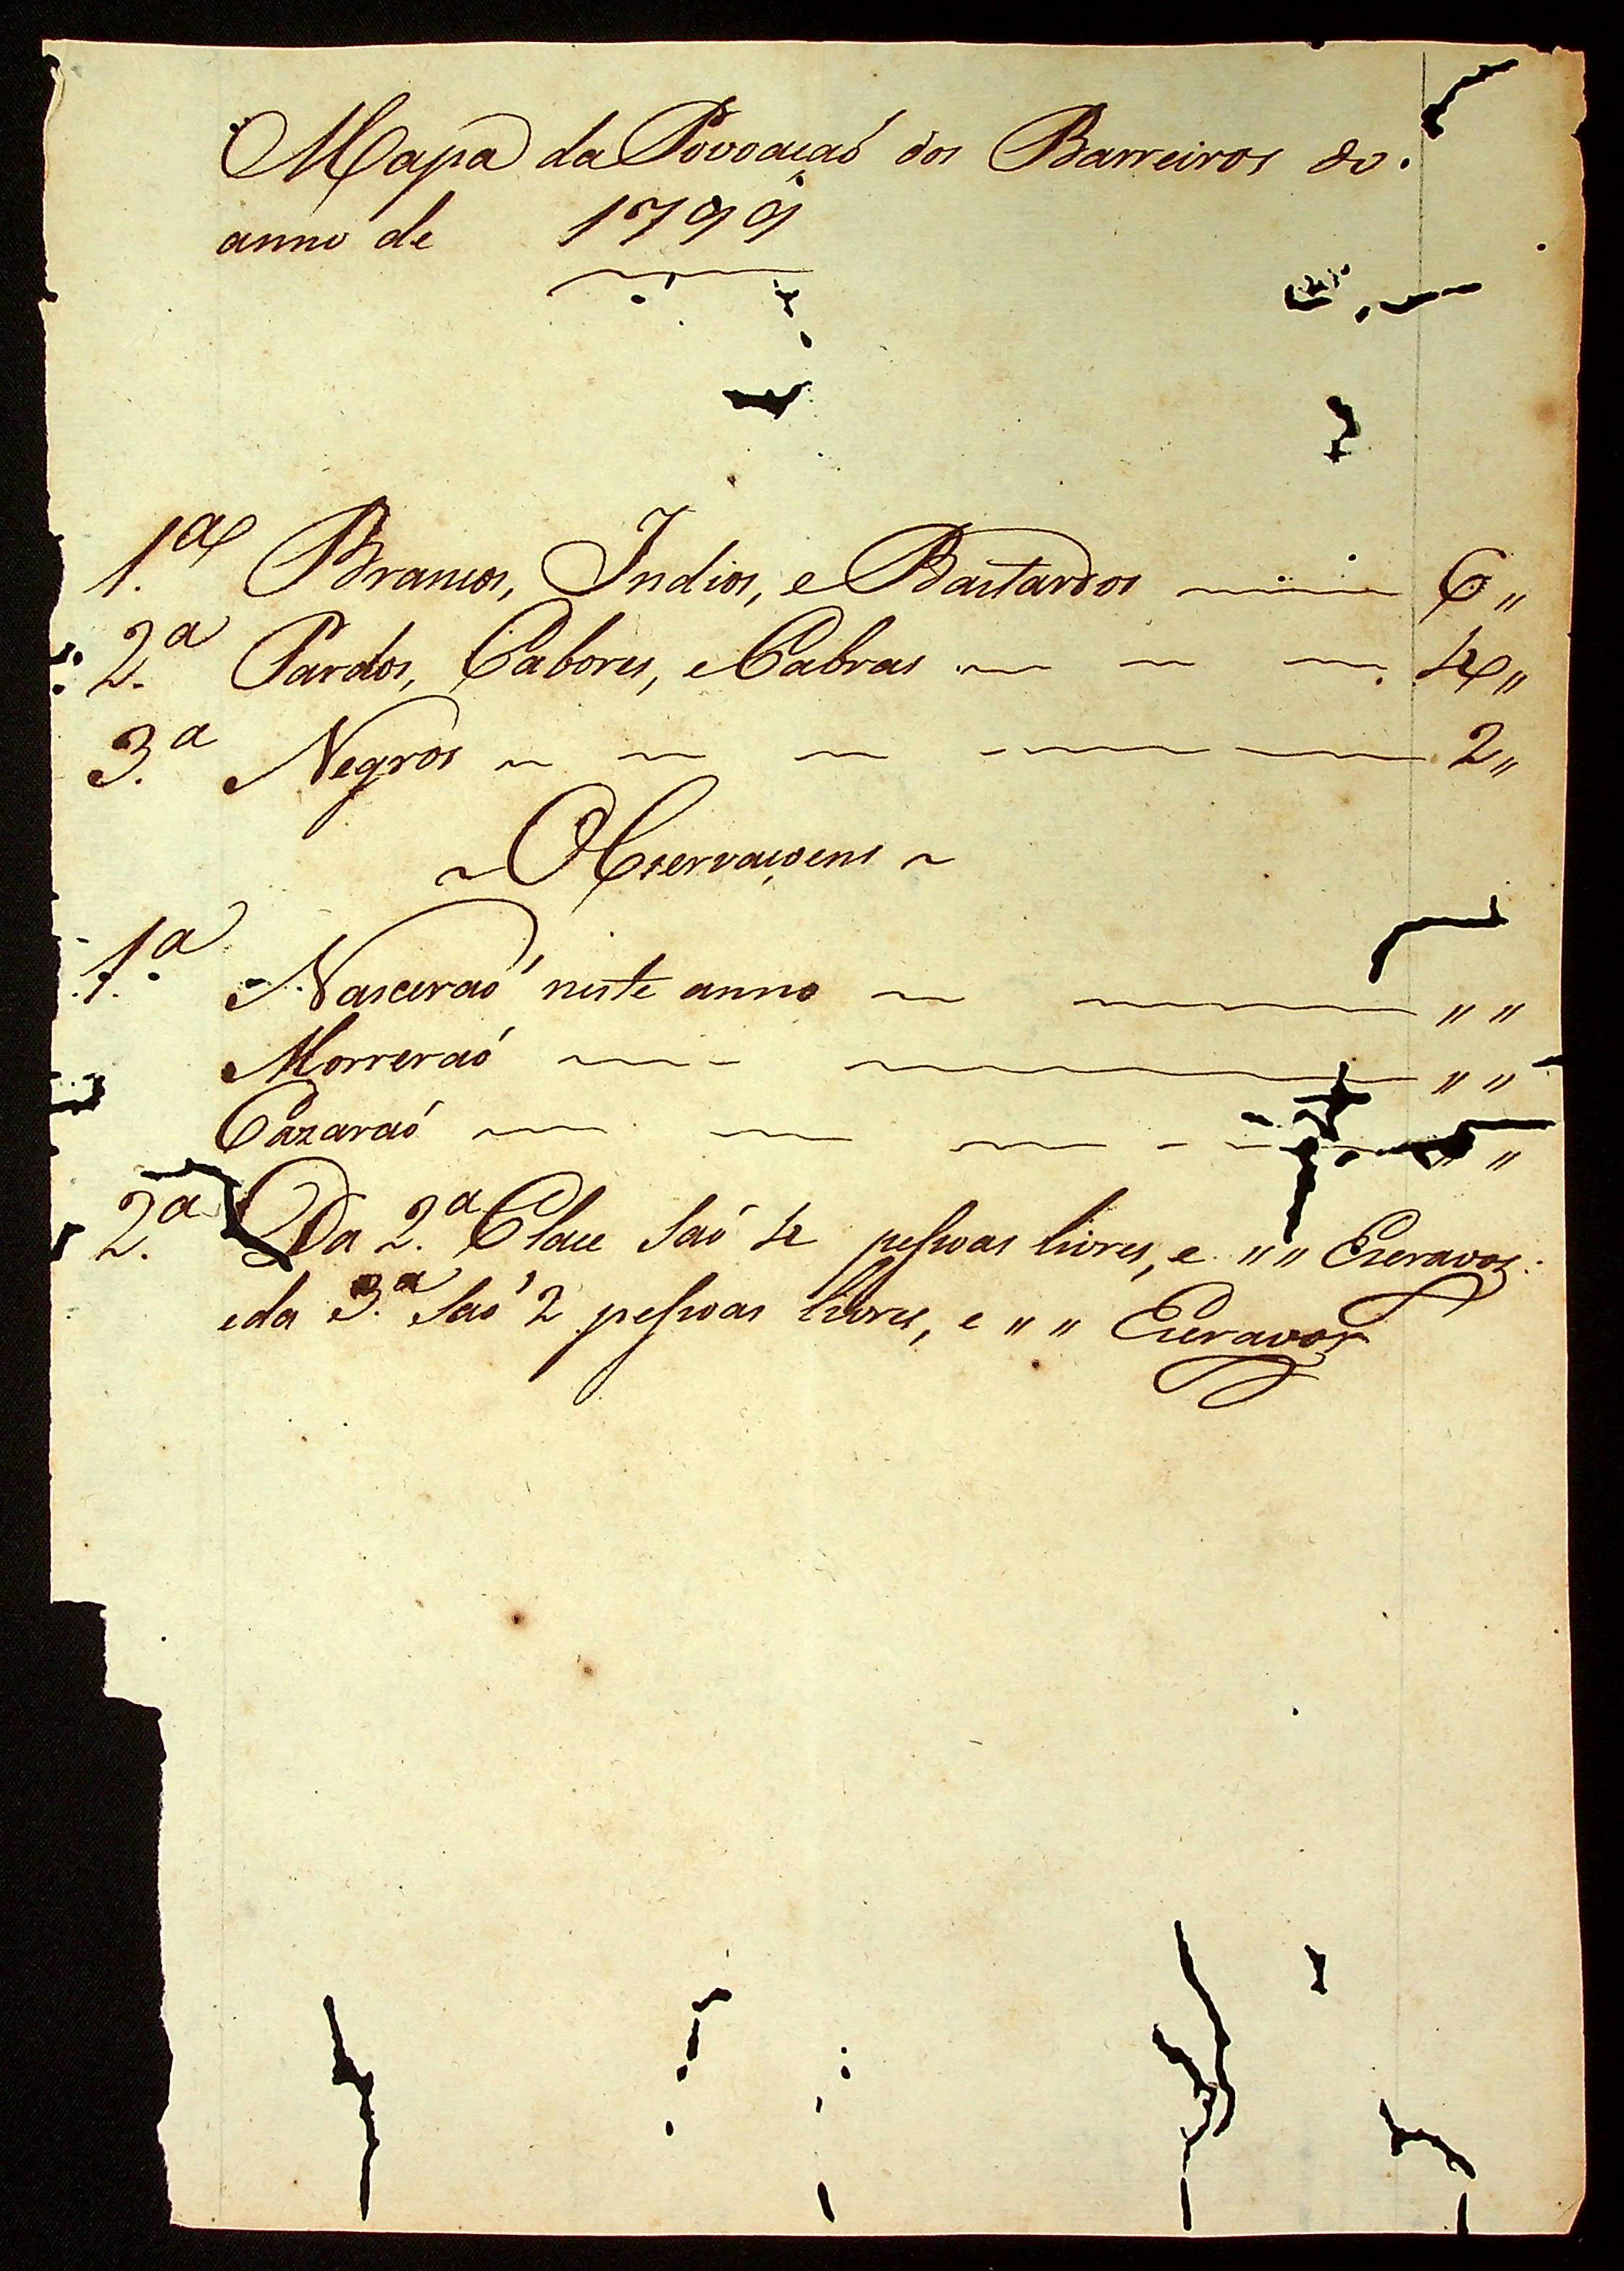 Mapa da Povoaçaó dos Barreiros do
anno de 1799
1.ª Brancos, Indios, e Bastardos 6 "
2.ª Pardos, Cabores, e Cabras 4 "
3.ª Negros 2 "
~ Observaçoens ~
1.ª Nasceraó neste anno " "
Morreraó " "
Cazaraó " "
2.ª Da 2.ª Clace Saó 4 peſsoas livres, e " " Escravos:
e da 3.ª Saó 2 peſsoas livres, e " " Escravos